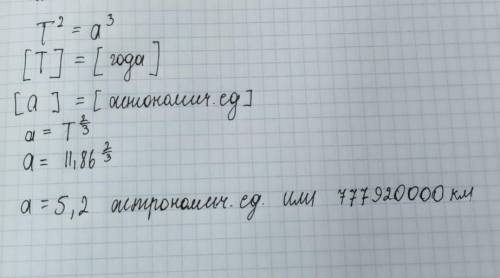 T² = a³
[T] = [года]
[a] = [астономич. ед]
a = T^{2/3}
a = 11,86^{2/3}
a = 5,2 астрономич. ед. или 777920000 км